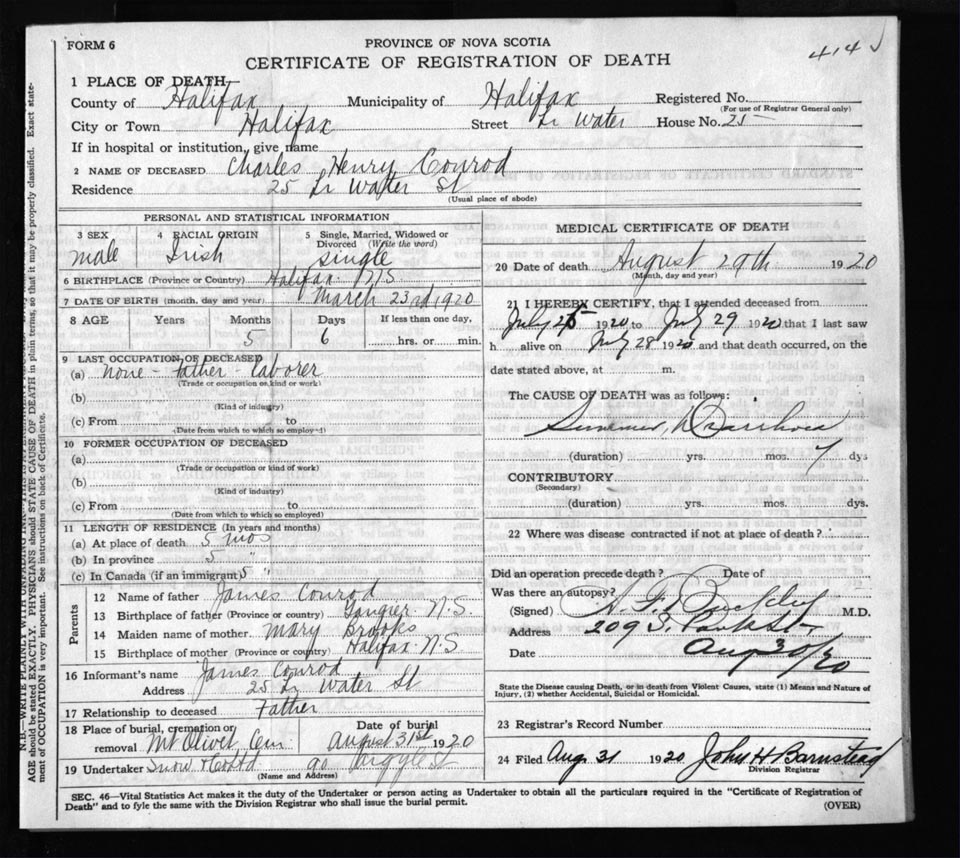 FORM 6
PROVINCE OF NOVA SCOTIA
414
CERTIFICATE OF REGISTRATION OF DEATH
1 PLACE OF DEATH
County of Halifax Municipality of Halifax Registered No.
(For use of Registrar General only)
City or Town Halifax Street Lr Water House No. 25
If in hospital or institution, give name
2 NAME OF DECEASED Charles Henry Conrod
Residence 25 Lr Water St
(Usual place of abode)
PERSONAL AND STATISTICAL INFORMATION
3 SEX 4 RACIAL ORIGIN 5 Single, Married, Widowed or Divorced (Write the word)
male Irish single
6 BIRTHPLACE (Province or Country) Halifax N S
7 DATE OF BIRTH (month, day and year) March 23rd 1920
8 AGE Years Months Days If less than one day,
5 6 hrs. or min.
9 LAST OCCUPATION OF DECEASED
(a) none - Father - Laborer
(Trade or occupation or kind or work)
(b)
(Kind of industry)
(c) From to
(Date from which to which so employed)
10 FORMER OCCUPATION OF DECEASED
(a)
(Trade or occupation or kind of work)
(b)
(Kind of industry)
(c) From to
(Date from which to which so employed)
11 LENGTH OF RESIDENCE (In years and months)
(a) At place of death 5 mos
(b) In province 5 "
(c) In Canada (if an immigrant) 5 "
Parents
12 Name of father James Conrod
13 Birthplace of father (Province or country) Tangier N.S.
14 Maiden name of mother Mary Brooks
15 Birthplace of mother (Province or country) Halifax N.S
16 Informant's name James Conrod
Address 25 Lr Water St
17 Relationship to deceased Father
18 Place of burial, cremation or removal Mt Olivet Cem Date of burial August 31st 1920
19 Undertaker Snow 90 Argyle St
(Name and Address)
MEDICAL CERTIFICATE OF DEATH
20 Date of death August 29th 1920
(Month, day and year)
21 I HEREBY CERTIFY, that I attended deceased from
July 1920 to July 29 1920 that I last saw
h alive on July 28 1920 and that death occurred, on the
date stated above, at m.
The CAUSE OF DEATH was as follows:
Summer Diarrhoea
(duration) yrs. mos. 7 dys
CONTRIBUTORY
(Secondary)
(duration) yrs. mos. dys.
22 Where was disease contracted if not at place of death?
Did an operation precede death? Date of
Was there an autopsy?
(Signed) Buckley M.D.
Address 209 S. Park St
Date Aug 30/20
State the Disease causing Death, or in death from Violent Causes, state (1) Means and Nature of
Injury, (2) whether Accidental, Suicidal or Homicidal.
23 Registrar's Record Number
24 Filed Aug 31 1920 John H Barnstead
Division Registrar
SEC. 46—Vital Statistics Act makes it the duty of the Undertaker or person acting as Undertaker to obtain all the particulars required in the "Certificate of Registration of
Death" and to fyle the same with the Division Registrar who shall issue the burial permit.
(OVER)
AGE should be stated EXACTLY. PHYSICIANS should STATE CAUSE OF DEATH in plain terms, so that it may be properly classified. Exact state-
ment of OCCUPATION is very important. See instructions on back of Certificate.